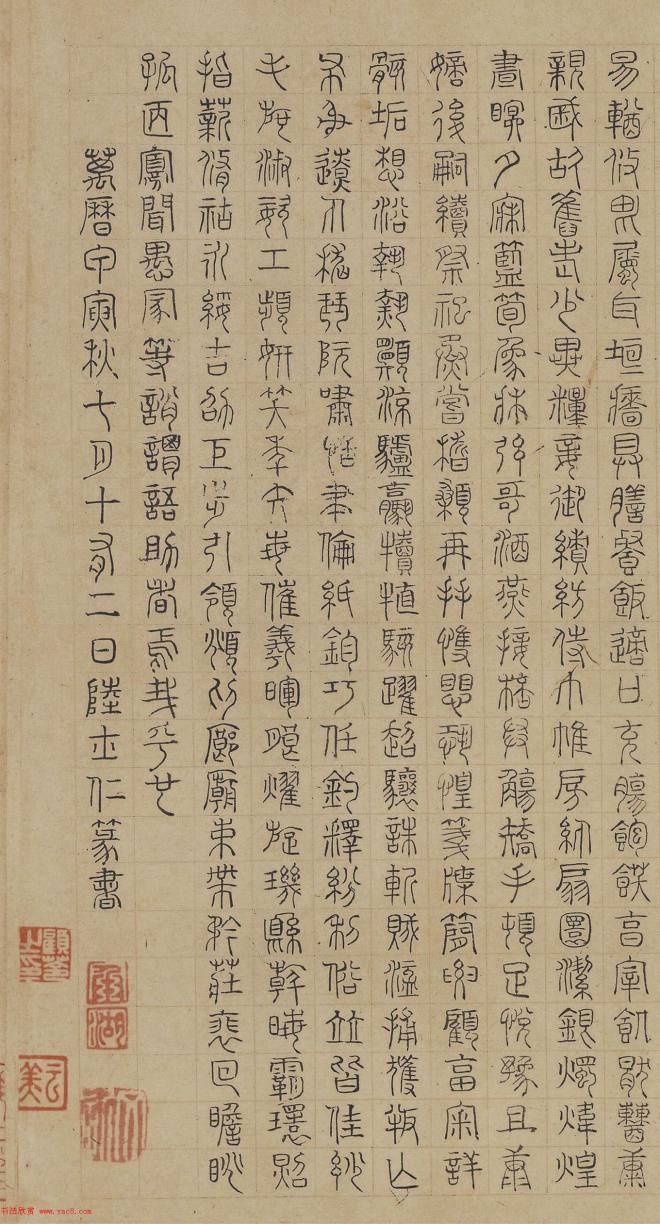 易輶攸畏屬耳垣牆具膳餐飯適口充腸飽飫亯宰飢猒糟糠
親戚故舊老少異糧妾御績紡侍巾帷房紈扇圓潔銀燭煒煌
晝瞑夕寐藍筍象牀弦哥酒燕接桮舉觴矯手頓足悅豫且康
嫡後嗣續祭祀烝嘗稽顙再拜悚懼恐惶箋牒簡要顧答審詳
骸垢想浴執熱願涼驢驘犢特駭躍超驤誅斬賊盜捕獲叛亡
布射遼丸嵇琴阮嘯恬筆倫紙鈞巧任釣釋紛利俗竝皆佳妙
毛施淑姿工顰妍笑年矢每催羲暉朗耀旋璣縣斡晦霸環照
指薪脩祜永綏吉劭巨步引領俯仰廊廟束帶矜莊裴回瞻眺
孤陋寡聞愚蒙等誚謂語助者焉哉乎也
萬曆甲寅秋七月十有二日陸士仁篆書
书法欣赏 www.yac8.com